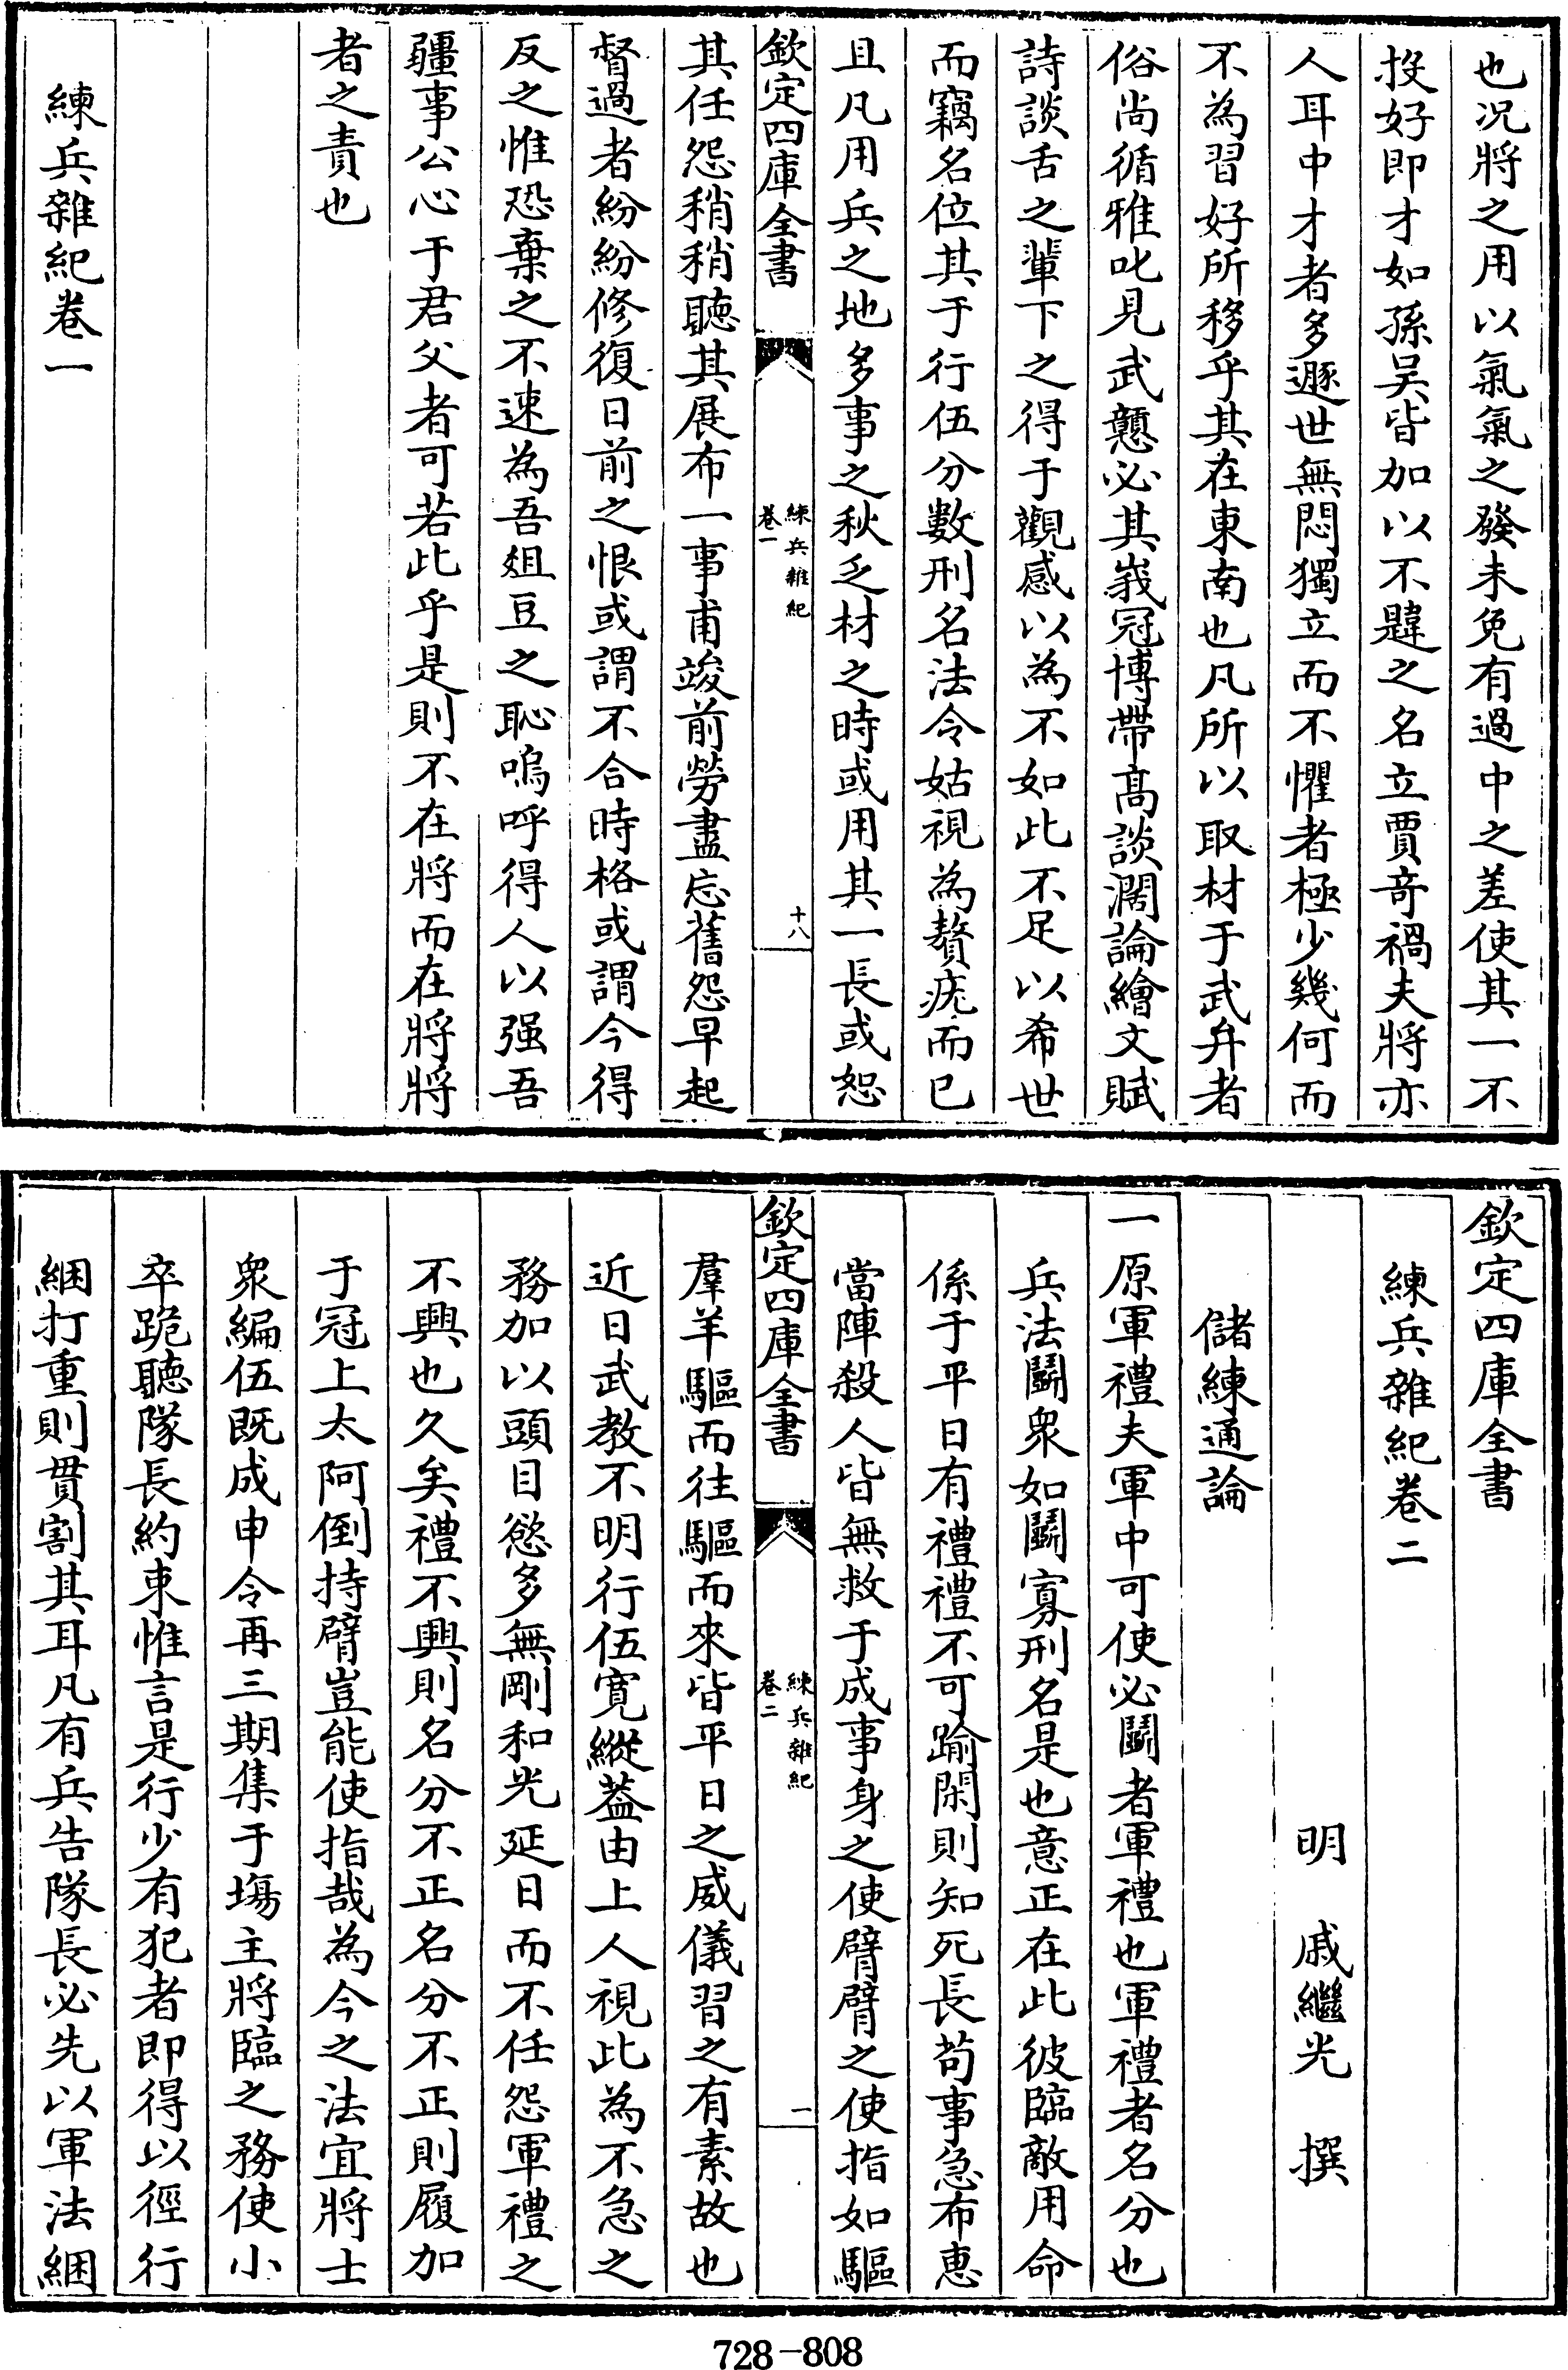 也况將之用以氣氣之發未免有過中之差使其一不
投好即才如孫吳皆加以不韙之名立賈竒禍夫將亦
人耳中才者多遯世無悶獨立而不懼者極少幾何而
不為習好所移乎其在東南也凡所以取材于武弁者
俗尚循雅叱見武戇必其峩冠博帶髙談濶論繪文賦
詩談舌之輩下之得于觀感以為不如此不足以希世
而竊名位其于行伍分數刑名法令姑視為贅疣而已
且凡用兵之地多事之秋乏材之時或用其一長或恕
欽定四庫全書
練兵雜紀
卷一
十八
其任怨稍稍聽其展布一事甫竣前勞盡忘舊怨早起
督過者紛紛修復日前之恨或謂不合時格或謂今得
反之惟恐棄之不速為吾爼豆之恥嗚呼得人以强吾
疆事公心于君父者可若此乎是則不在將而在將將
者之責也
練兵雜紀卷一
欽定四庫全書
練兵雜紀卷二
明 戚繼光 撰
儲練通論
一原軍禮夫軍中可使必鬬者軍禮也軍禮者名分也
兵法鬬衆如鬬寡刑名是也意正在此彼臨敵用命
係于平日有禮禮不可踰閑則知死長苟事急布惠
當陣殺人皆無救于成事身之使臂臂之使指如驅
欽定四庫全書
練兵雜紀
卷二
一
羣羊驅而往驅而來皆平日之威儀習之有素故也
近日武教不明行伍寛縱葢由上人視此為不急之
務加以頭目慾多無剛和光延日而不任怨軍禮之
不興也久矣禮不興則名分不正名分不正則履加
于冠上太阿倒持臂豈能使指哉為今之法宜將士
衆編伍既成申令再三期集于塲主將臨之務使小
卒跪聽隊長約束惟言是行少有犯者即得以徑行
綑打重則貫割其耳凡有兵告隊長必先以軍法綑
728-808